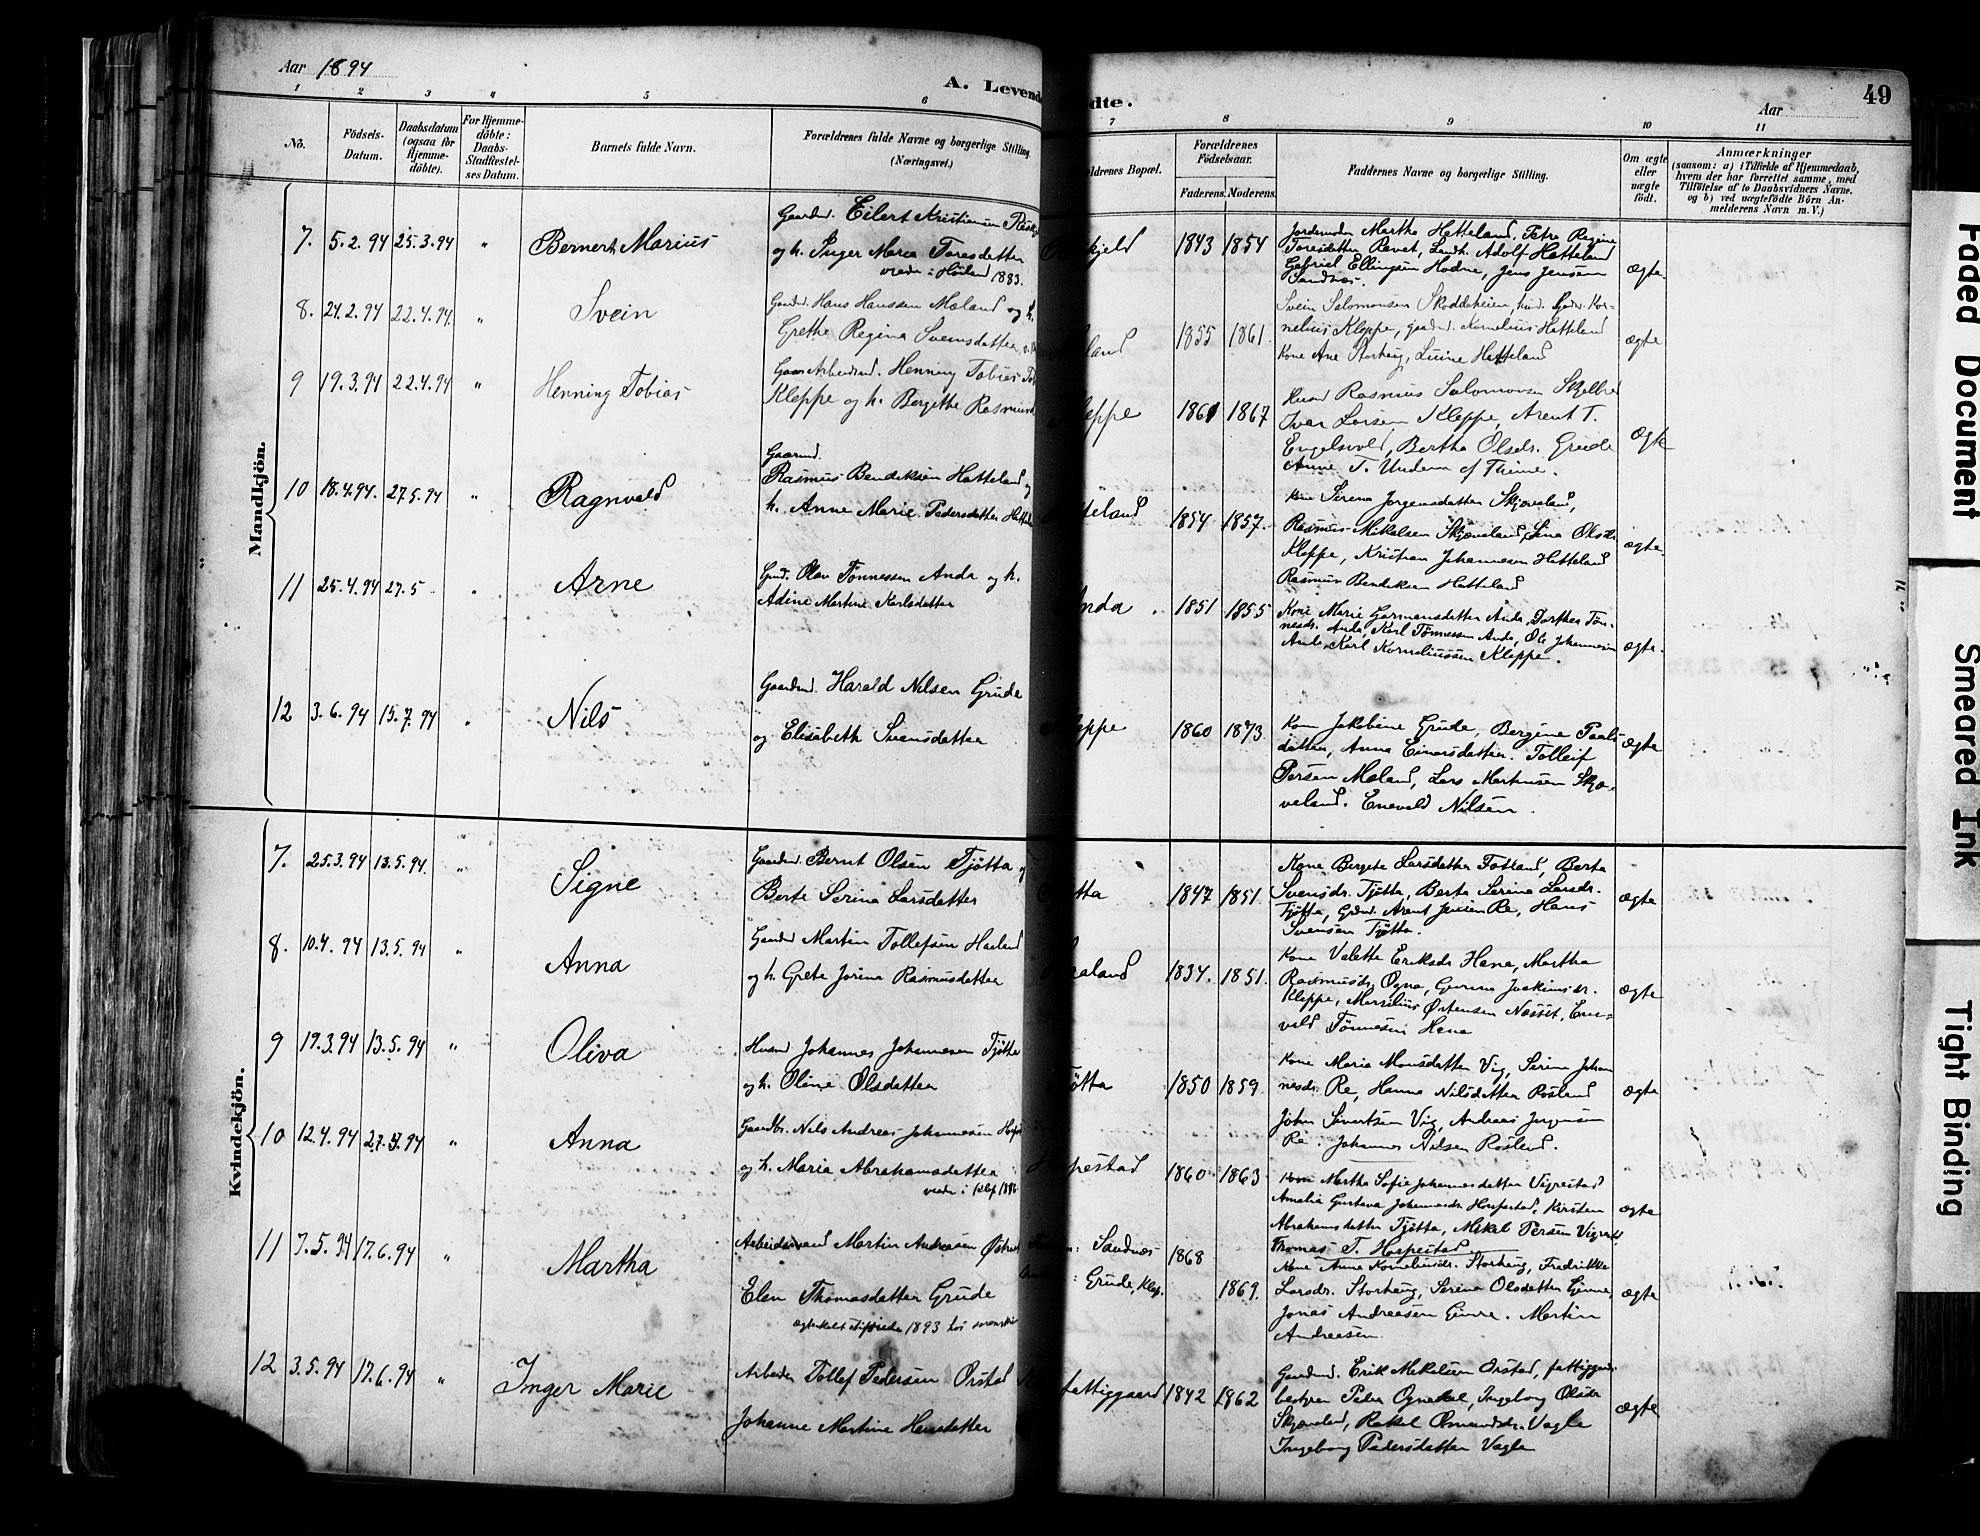 Aar 1894
A. Levend
dte.
Aar
49
1 2 3 4 5 6 7 8 9 10 11
No.
Födsels-
Datum.
Daabsdatum
(ogsaa for
Hjemme-
döbte).
For Hjemme-
döbte:
Daabs-
Stadfæstel-
ses Datum.
Barnets fulde Navn.
Forældrenes fulde Navne og borgerlige Stilling.
(Næringsvei.)
ldrenes Bopæl.
Forældrenes
Födselsaar.
Faderens. Moderens.
Faddernes Navne og borgerlige Stilling.
Om ægte
eller
uægte
födt.
Anmærkninger
(saasom: a) i Tilfælde af Hjemmedaab,
hvem der har forrettet samme, med
Tilföielse af to Daabsvidners Navne.
og b) ved uægtefödte Börn An-
melderens Navn m.V.)
Mandkjön.
7. 5.2.94 25.3.94 " Bernert Marius
Gaardmd. Eilert Kristiansen
og h. Inger Marie Taresdatter
viede i Høiland 1883.
kjeld 1843 1854
Jordemoder Martha Hatteland, Petra Regine
Taresdatter Revet, Landh. Adolf Hatteland
Gabriel Ellingsen Hodne, Jens Jensen
Sandnæs.
ægte
8. 24.2.94 22.4.94. " Svein
Gaardmd. Hans Hanssen Mæland og h.
Grethe Regina Svensdatter
land 1855 1861
Svein Salomonsen Skoddeheien, husd. Kor-
nelius Kleppe, gaardmd. Kornelius Hatteland
Kone Ane Storhoug, Luine Hatteland
ægte
9 19.3.94 22.4.94 " Henning Tobias
Arbeidsmd. Henning Tobias
Kleppe og h. Bergithe Rasmus
ppe 1861 1867
Husmd Rasmus Salomonsen
Ivar Larsen Kleppe, Arent T.
Engelsvold, Bertha Olsdr. Grude
Anne T. Undem af Thime.
ægte
10 18.4.94. 27.5.94 " Ragnvald
Gaardmd.
Rasmus Bendiksen Hatteland og
h. Anne Marie Pedersdatter
teland 1854 1857.
Kone Serena Jorgensdatter Skjæveland,
Rasmus Mikalsen Skjæveland, Sina Olsdr.
Kleppe, Kristian Johannesen Hatteland
Rasmus Bendiksen Hatteland
ægte
11 25.4.94 27.5 " Arne
Gmd. Olav Tønnessen Anda og h.
Adine Martine Karlsdatter
nda 1851 1855
Kone Marie Garmansdatter Anda, Dorthea Tøn-
nesdr. Anda, Karl Tønnessen Anda, Ole Johannesen
Anda, Karl Korneliussen Kleppe.
ægte.
12 3.6.94 15.7.94 " Nils
Gaardmd. Harald Nilsen Grude
og Elisabeth Svensdatter
ppe 1860 1873.
Kone Jakobine Grude, Bergine Paals-
datter, Anna Einarsdatter. Tolleif
Persen Mæland, Lars Martinsen Skjæ-
veland. Enevald Nilsen.
ægte
Kvindekjön.
7. 25.3.94 13.5.94. " Signe
Gaardmd. Bernt Olsen Tjøtta og
Berte Serina Larsdatter
tta 1847 1851.
Kone Bergete Larsdatter Fotland, Berta
Svensdr. Tjøtta, Berta Serina Larsdr.
Tjøtta, Gdmd. Arent Jensen Re, Hans
Svensen Tjøtta.
ægte
8. 10.4.94 13.5.94 " Anna
Gaardmd Martin Tollefsen Haaland
og h. Grete Jorina Rasmusdatter
aland 1834. 1851.
Kone Valette Eriksdr Hana, Martha
Rasmusdr. Ogna, Gurine Joakimsdr.
Kleppe, Marselius Østensen Næsset, Ene-
vald Tønnesen Hana
ægte
9 17.3.94 13.5.94 " Oliva
Husmd Johannes Johannesen Tjøtta
og h. Oline Olsdatter
øtta 1850 1859.
Kone Maria Monsdatter Vig, Serine Johan
nesdr. Re, Hanna Nilsdatter Rosland
John Sivertsen Vig, Andreas Jorgensen
Re. Johannes Nilsen Rosland.
ægte
10 12.4.94 27.5.94 " Anna
Gaardbr. Nils Andreas Johannesen
og h. Maria Abrahamsdatter
viede i Klep
pestad 1860 1863
Kone Martha Sofie Johannesdatter Vigrestad
Amalia Gustava Johannesdr. Horpestad, Kirsten
Abrahamsdatter Tjøtta, Mikal Persen Vigrestad
Thomas T. Horpestad
ægte
11 7.5.94 17.6.94 " Martha
Arbeidsmand Martin Andreasen
Elen Thomasdatter Grude
ægteskab stiftede 1893
: Sandnæs
: Grude, Klep.
1868
1869.
Kone Anna Kornelinsdr. Storhoug, Fredrikke
Larsdr. Storhoug, Serina Olsdatter Gimre,
Jonas Andreasen Gimre. Martin
Andreasen.
ægte
12 3.5.94 17.6.94 " Inger Marie
Arbeider Tollef Pedersen Orstad
Johanne Martine Hansdatter
fattiggaard 1842 1862
Gaardmd. Erik Mikalsen Orstad, fattiggaards-
bestyrer Peder Ognedal, Ingeborg Olsdr
Skjæveland, Rakel Osmundsdr. Vagle
Ingeborg Pedersdatter Vagle
ægte
Faded Document
Smeared Ink
Tight Binding